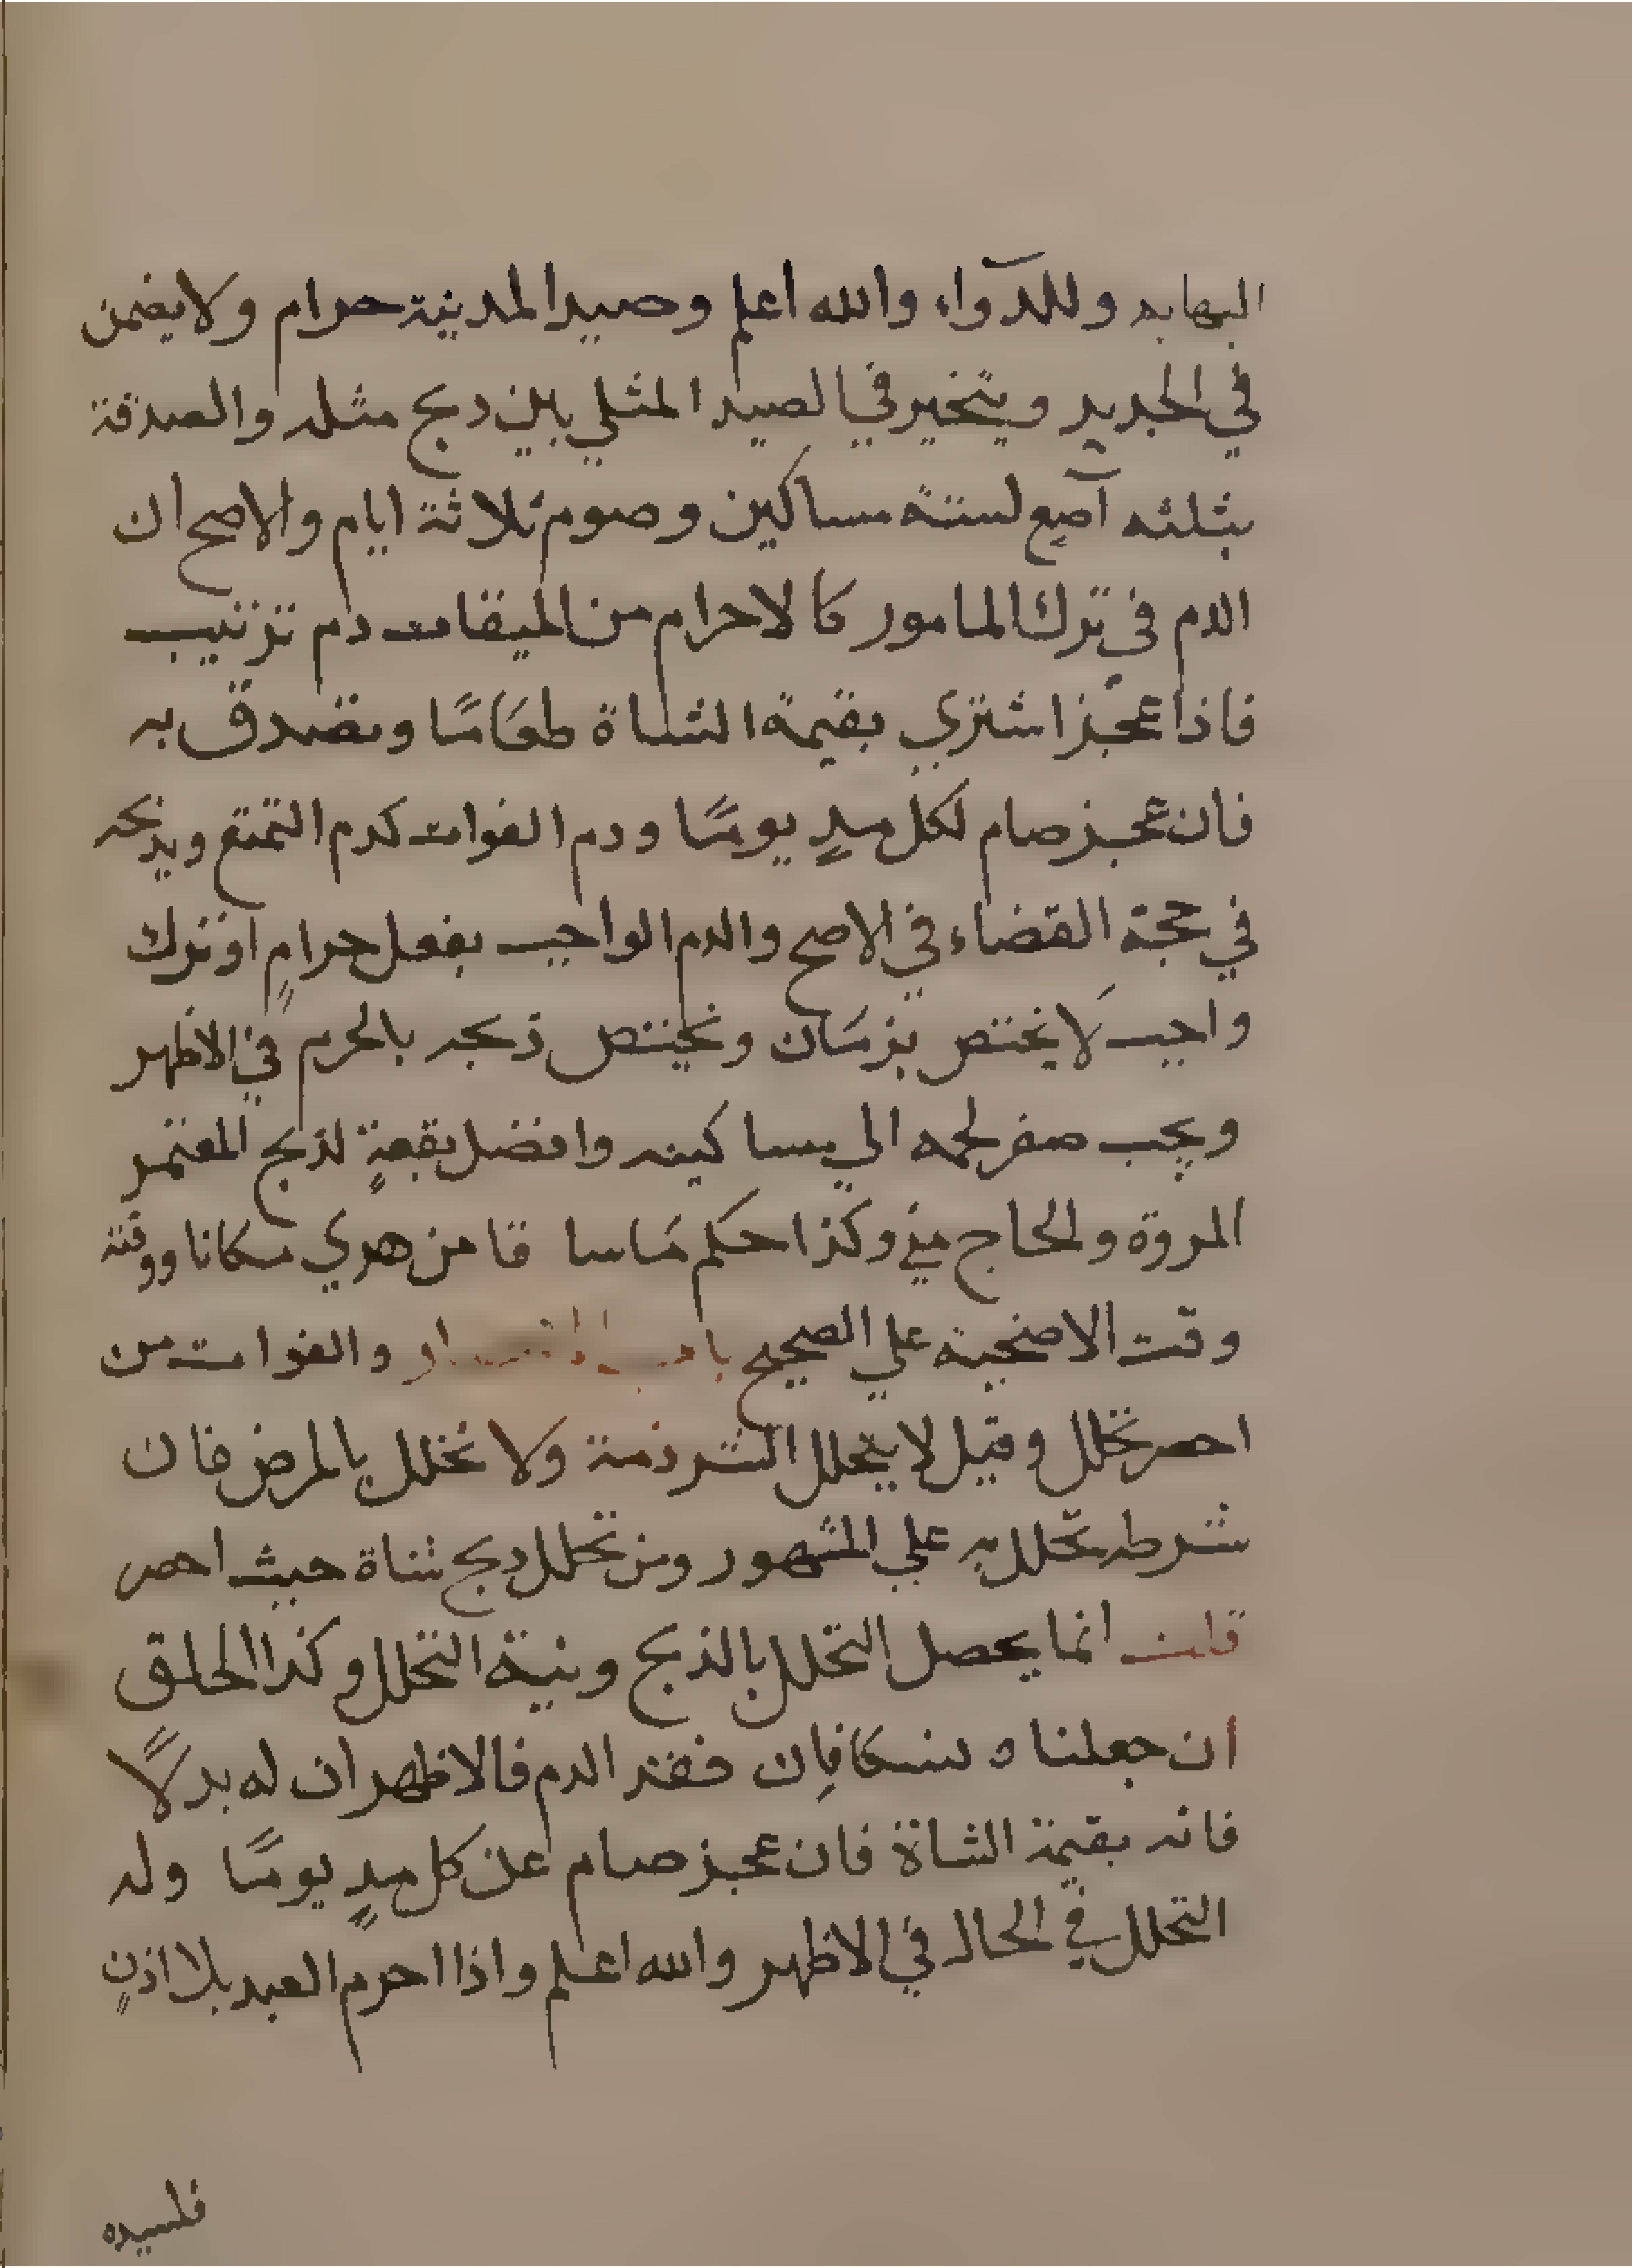 البهايم وللدوآء والله اعلم وصيد المدينة حرام ولا يضمن
في الجديد ويتخير في الصيد المثلي بين دبح مثله والصدقة
بثلثه آصع لستة مساكين وصوم ثلاثة ايام والاصح ان
الدم في ترك المامور كالاحرام من الميقات دم ترتيب
فاذا عجز اشتري بقيمة الشاة طعامًا وتصدق به
فان عجز صام لكل مدٍ يومًا ودم الفوات كدم التمتع ويذبحه
في حجة القضاء في الاصح والدم الواجب بفعل حرامٍ او ترك
واجب لا يختص بزمان ويختص ذبحه بالحرم في الاظهر
ويجب صفر لحمه الي مساكينه وافضل بقعةٍ لذبح المعتمر
المروة والحاج مني وكذا حكم ماسا قا من هدي مكانا ووقته
وقت الاضحية علي الصحيح باب والفوات من
احصر تحلل وقيل لا يتحلل الشرذمة ولا تحلل بالمرض فان
شرطه تحلل به علي المشهور ومن تحلل دبح شاة حيث احصر
قلت انما يحصل التحلل بالذبح ونية التحلل وكذا الحلق
ان جعلناه نسكا فان فقد الدم فالاظهر ان له بدلًا
فانه بقيمة الشاة فان عجز صام عن كل مدٍ يومًا وله
التحلل في الحال في الاظهر والله اعلم واذا احرم العبد بلا اذنٍ
فلسيده